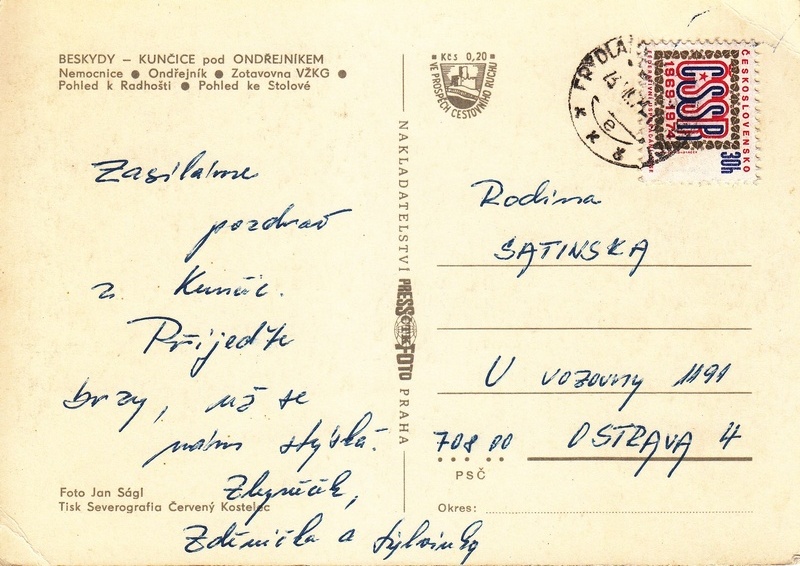 BESKYDY – KUNČICE pod ONDŘEJNÍKEM
Nemocnice ● Ondřejník ● Zotavovna VŽKG ●
Pohled k Radhošti ● Pohled ke Stolové
Zasíláme
pozdrav
z Kunčic.
Přijeďte
brzy, už se
nám stýská.
Zbyněček,
Zděnička a Sylvinka
Foto Jan Ságl
Tisk Severografia Červený Kostelec
NAKLADATELSTVÍ PRESSFOTO PRAHA
Kčs 0,20
VE PROSPĚCH CESTOVNÍHO RUCHU
FRÝDLAN
ČESKOSLOVENSKO
ČSSR
1969-1974
30h
Rodina
SATINSKA
U vozovny 1191
708 00 OSTRAVA 4
PSČ
Okres: